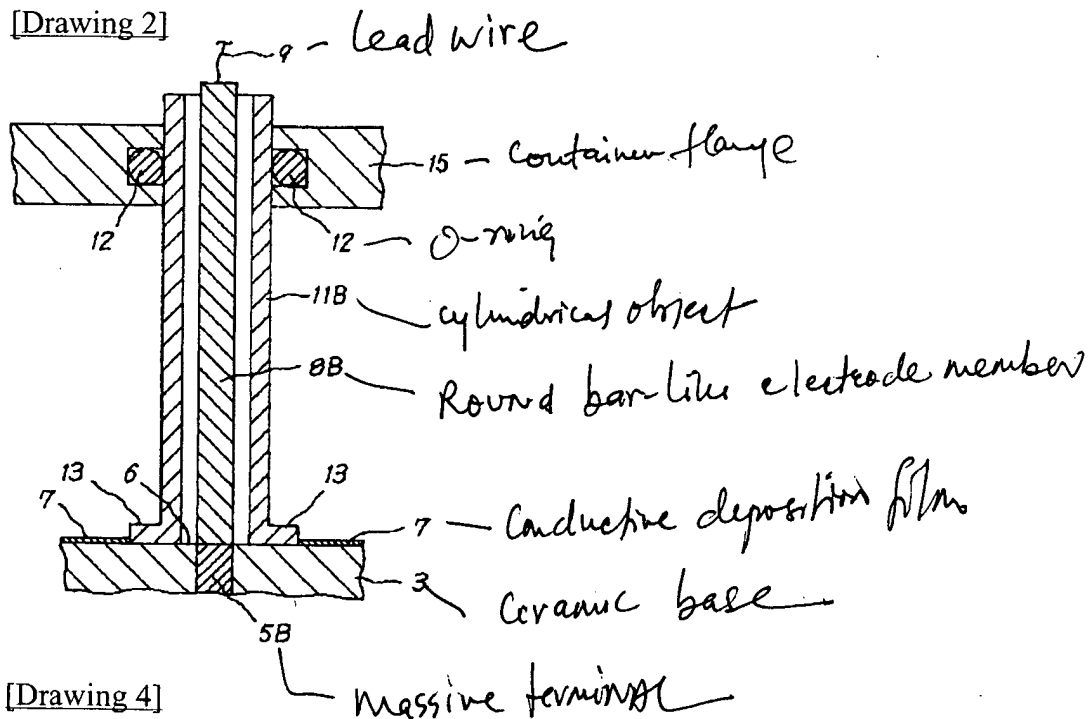 [Drawing 2]
9 - Lead wire
15 - Container flange
12
12 - O-ring
11B cylindrical object
8B Round bar-like electrode member
13 6 13
7
7 - Conductive deposition film
3 Ceramic base
5B massive terminal
[Drawing 4]